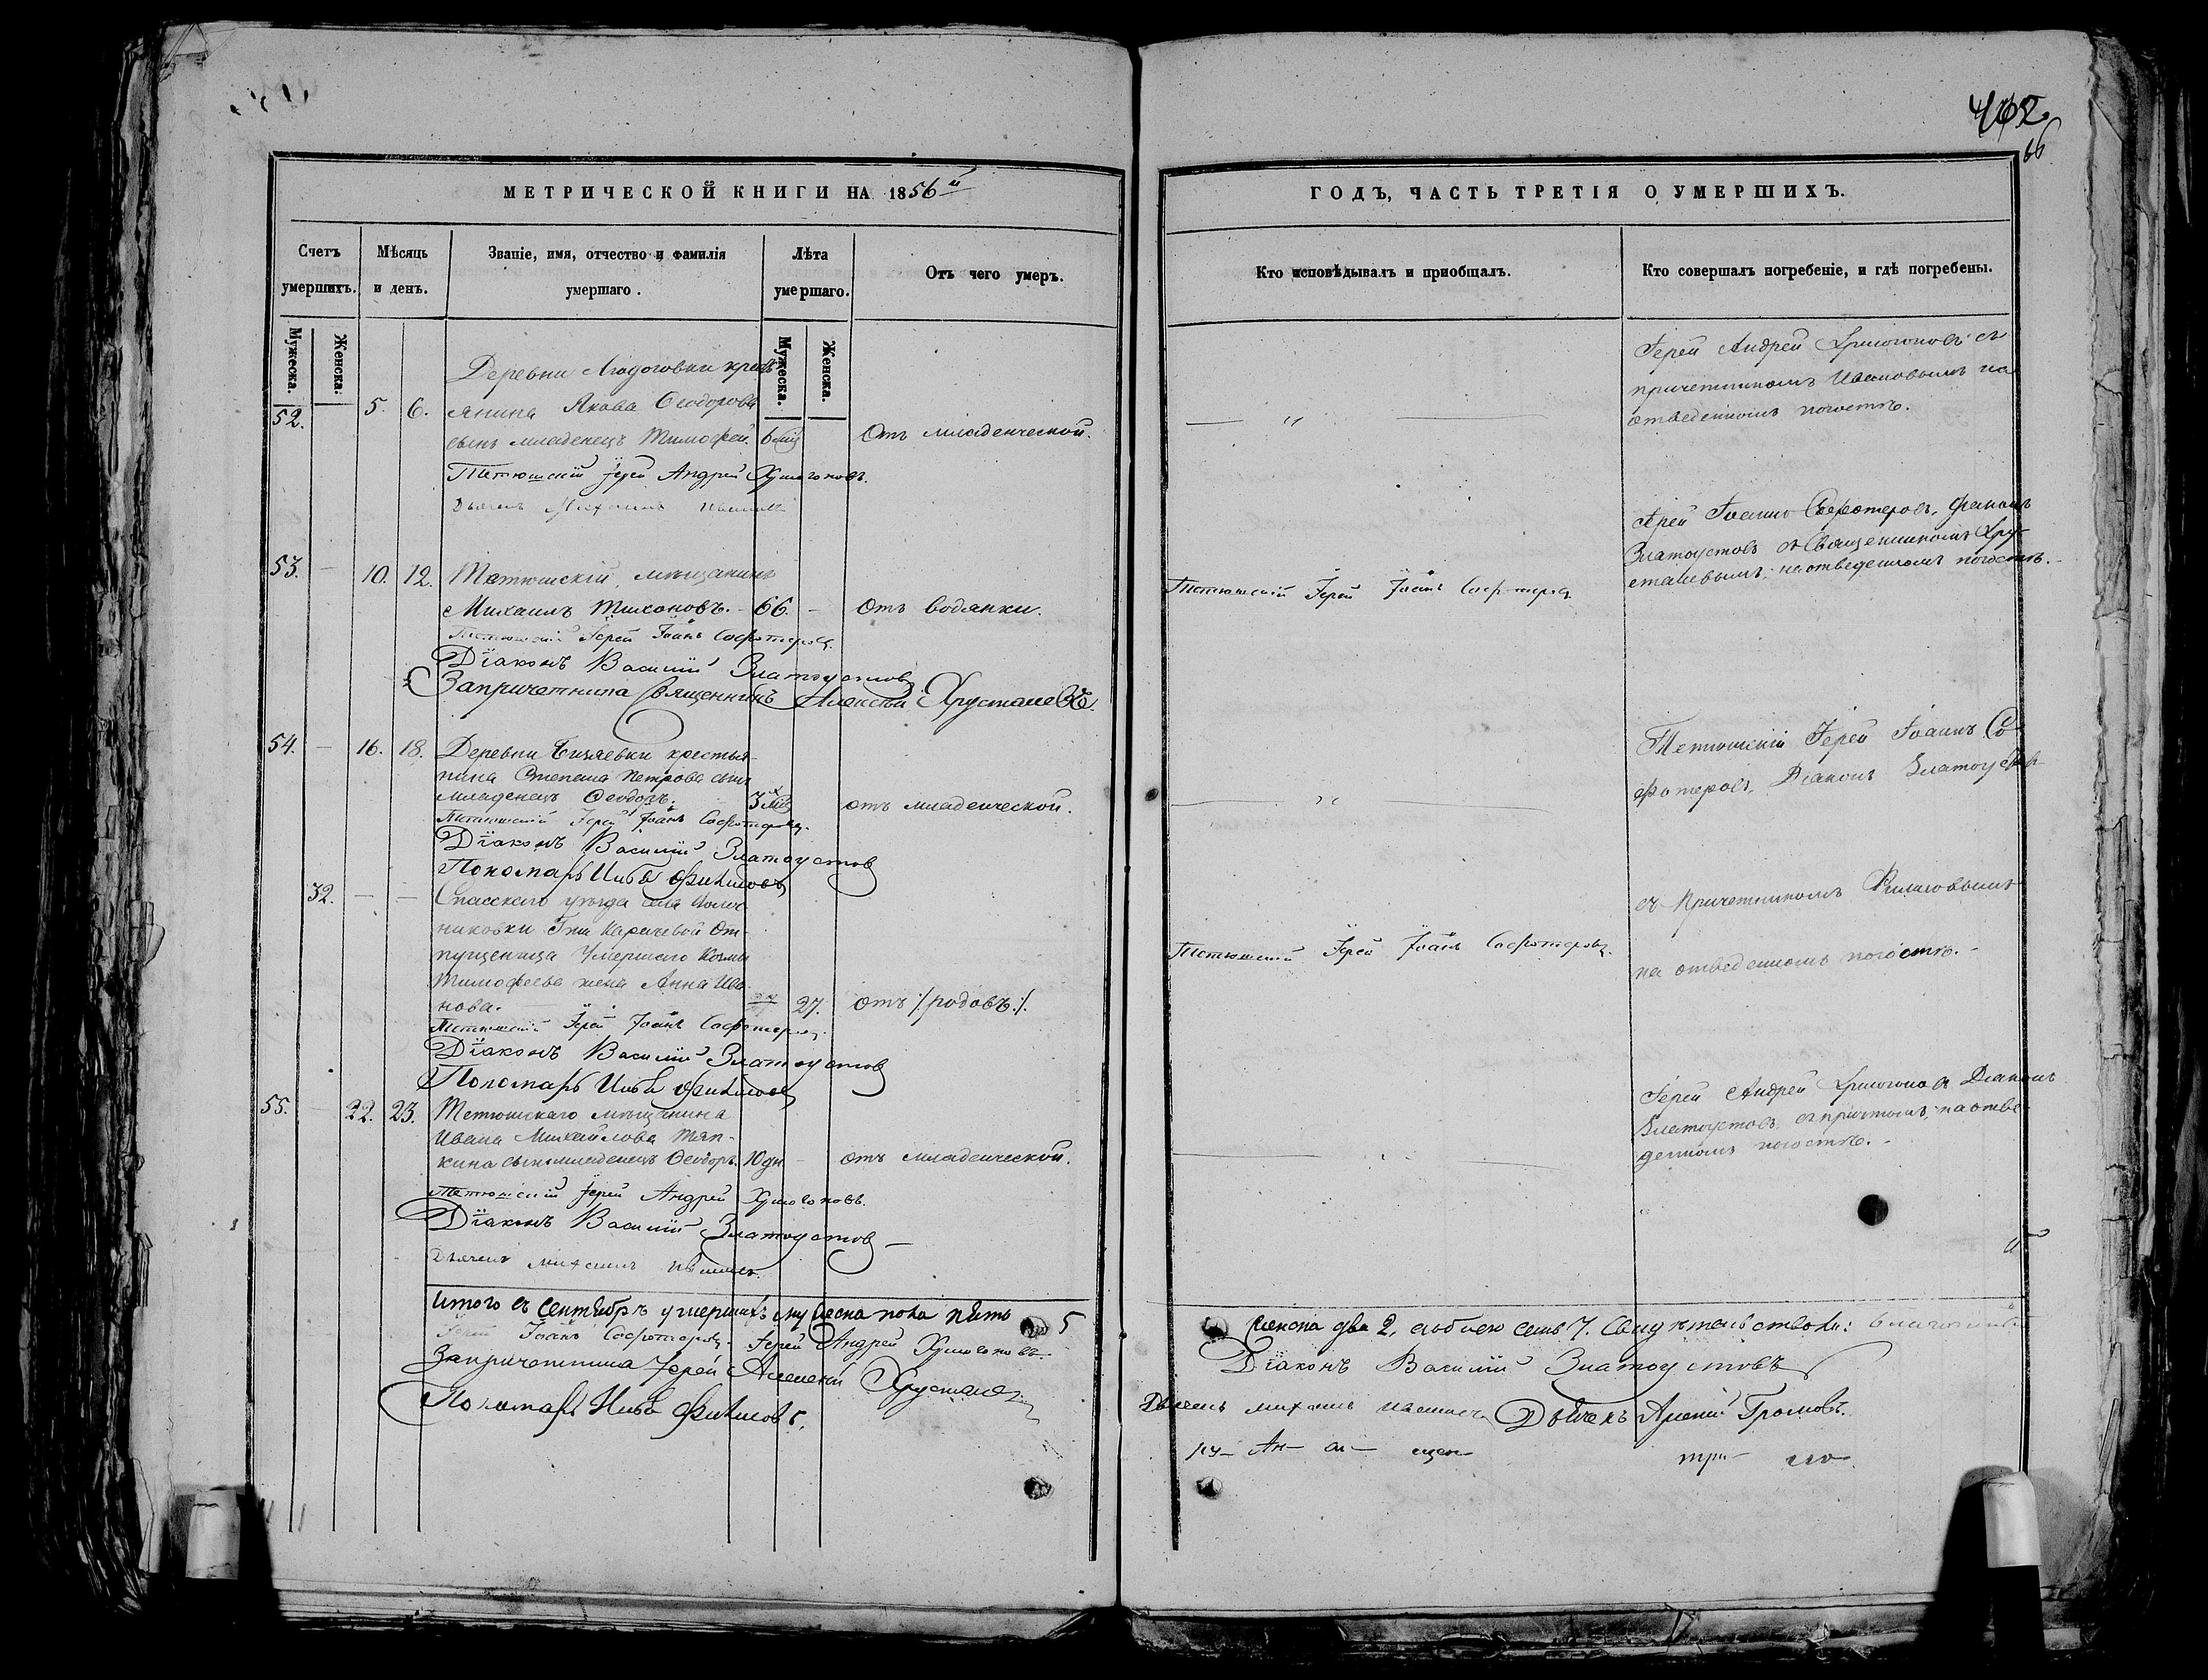 402
66
МЕТРИЧЕСКОЙ КНИГИ НА 1856й
Счетъ умершихъ.
Мужеска.
Женска.
Мѣсяцъ и день.
Званіе, имя, отчество и фамилія умершаго.
Лѣта умершаго.
Мужеска.
Женска.
Отъ чего умеръ.
52. 5. 6.
Деревни крестъ
янина Якова Ѳеодорова
сынъ младенецъ Тимофей. 6 Отъ младенческой.
Тетюшскій Іерей Андрей
Дьячекъ Михаилъ Ивановъ
53. — 10. 12. Тетюшскій мѣщанинъ
Михаилъ Тихоновъ. 66. — Отъ водянки.
Тетюшскій Іерей Іоаннъ Софотеровъ
Діаконъ Василій Златоустовъ
За причетника Священникъ Алексѣй Хрусталевъ.
54. — 16. 18. Деревни крестья-
нина Степана Петрова сынъ
младенецъ Ѳеодоръ. 3 отъ младенческой.
Тетюшскій Іерей Іоаннъ Софотеровъ
Діаконъ Василій Златоустовъ
Пономарь Филиповъ
32. — — Спасскаго уѣзда села
Гжи Каричевой От-
пущенца Умершаго Козмы
Тимофеева жена Анна Ива-
нова. 27. отъ /:родовъ:/.
Тетюшскій Іерей Іоаннъ Софотеровъ
Діаконъ Василій Златоустовъ
Пономарь Филиповъ
55. — 22. 23. Тетюшскаго мѣщанина
Ивана Михайлова Тяп-
кина сынъ младенецъ Ѳеодоръ. 10 дн — отъ младенческой.
Тетюшскій Іерей Андрей
Діаконъ Василій Златоустовъ
Дьячекъ Михаилъ Ивановъ.
Итого въ Сентябрѣ умершихъ мужеска пола пять 5
Іерей Іоаннъ Софотеровъ. Іерей Андрей
За причетника Іерей Алексѣй Хрусталевъ
Пономарь Филиповъ.
ГОДЪ, ЧАСТЬ ТРЕТІЯ О УМЕРШИХЪ.
Кто исповѣдывалъ и пріобщалъ.
Кто совершалъ погребеніе, и гдѣ погребены.
— „ —
Іерей Андрей съ
причетникомъ Ивановымъ на
отведенномъ погостѣ.
Тетюшскій Іерей Іоаннъ Софотеровъ
Іерей Іоаннъ Софотеровъ, Діаконъ
Златоустовъ съ Священникомъ Хру-
сталевымъ, на отведенномъ погостѣ.
— „ —
Тетюшскій Іерей Іоаннъ Со-
фотеровъ, Діаконъ Златоустовъ
Тетюшскій Іерей Іоаннъ Софотеровъ.
съ Причетникомъ Филиповымъ
на отведенномъ погостѣ.
— „ —
Іерей Андрей Діаконъ
Златоустовъ съ причтомъ, на отве-
денномъ погостѣ.
женска два 2, обоего семь 7. Свидѣтельствовали:
Діаконъ Василій Златоустовъ
Дьячекъ Михаилъ Ивановъ Дьячекъ Громовъ.